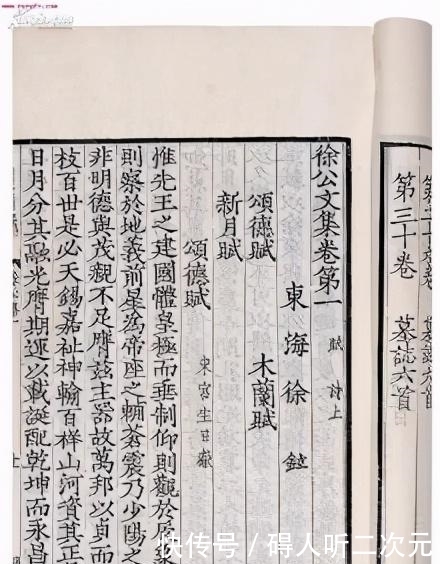 第三十卷 墓誌六首
徐公文集卷第一 賦 詩上
東海徐鉉
頌德賦 木蘭賦
新月賦
頌德賦 東宮生日獻
惟先王之建國體皇極而垂制仰則觀於
則察於地義前星為帝座之輔蒼震乃少陽之
非明德與茂親不足膺茲主器故萬邦以貞而
枝百世是必天錫嘉祉神輸百祥山河資其正
日月分其融光膺期運以載誕配乾坤而永昌
快传号／碍人听二次元